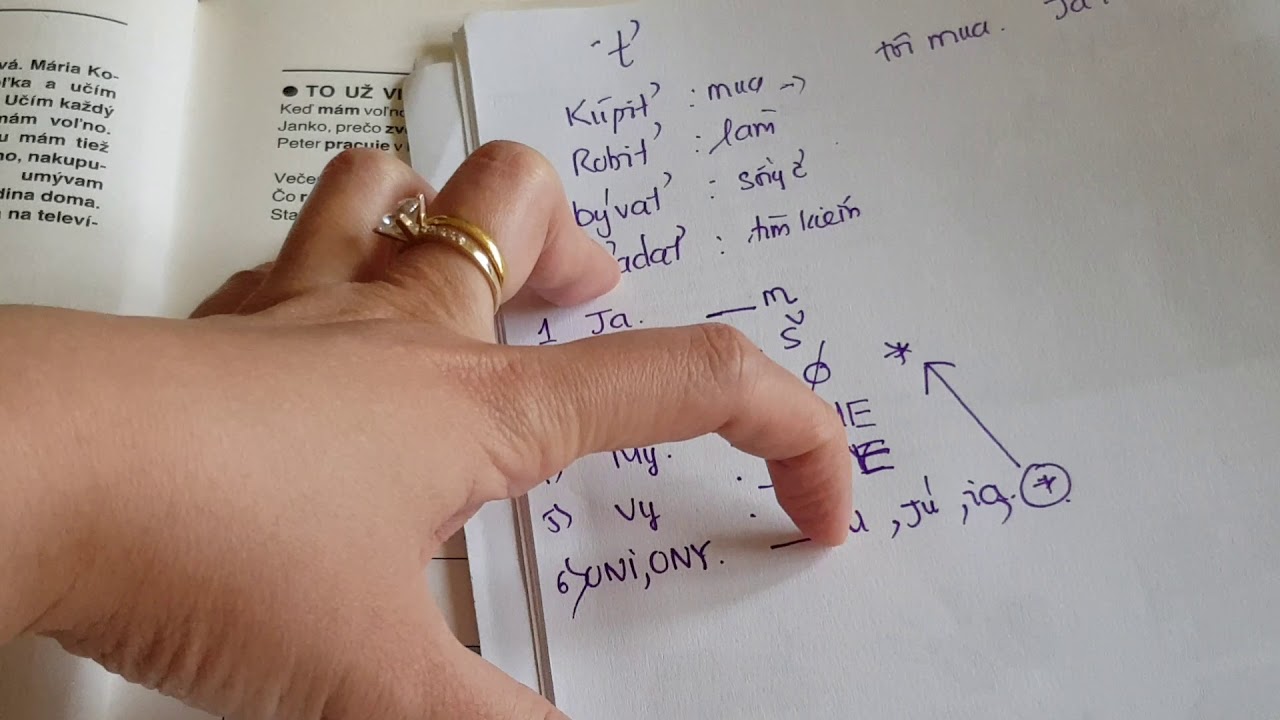 vá. Mária Ko-
ľka a učím
Učím každý
mám voľno.
u mám tiež
no, nakupu-
umývam
dina doma.
na televí-
● TO UŽ VI
Keď mám voľno
Janko, prečo zv
Peter pracuje v
Veče
Čo
Sta
-ť
tôi mua. Ja
Kúpiť : mua →
Robiť : làm
bývať : sống
adať : tìm kiếm
1 Ja. __m
š
ø *
ME
My. : E
5) Vy .
6) ONI, ONY. __ u, jú, ia, *